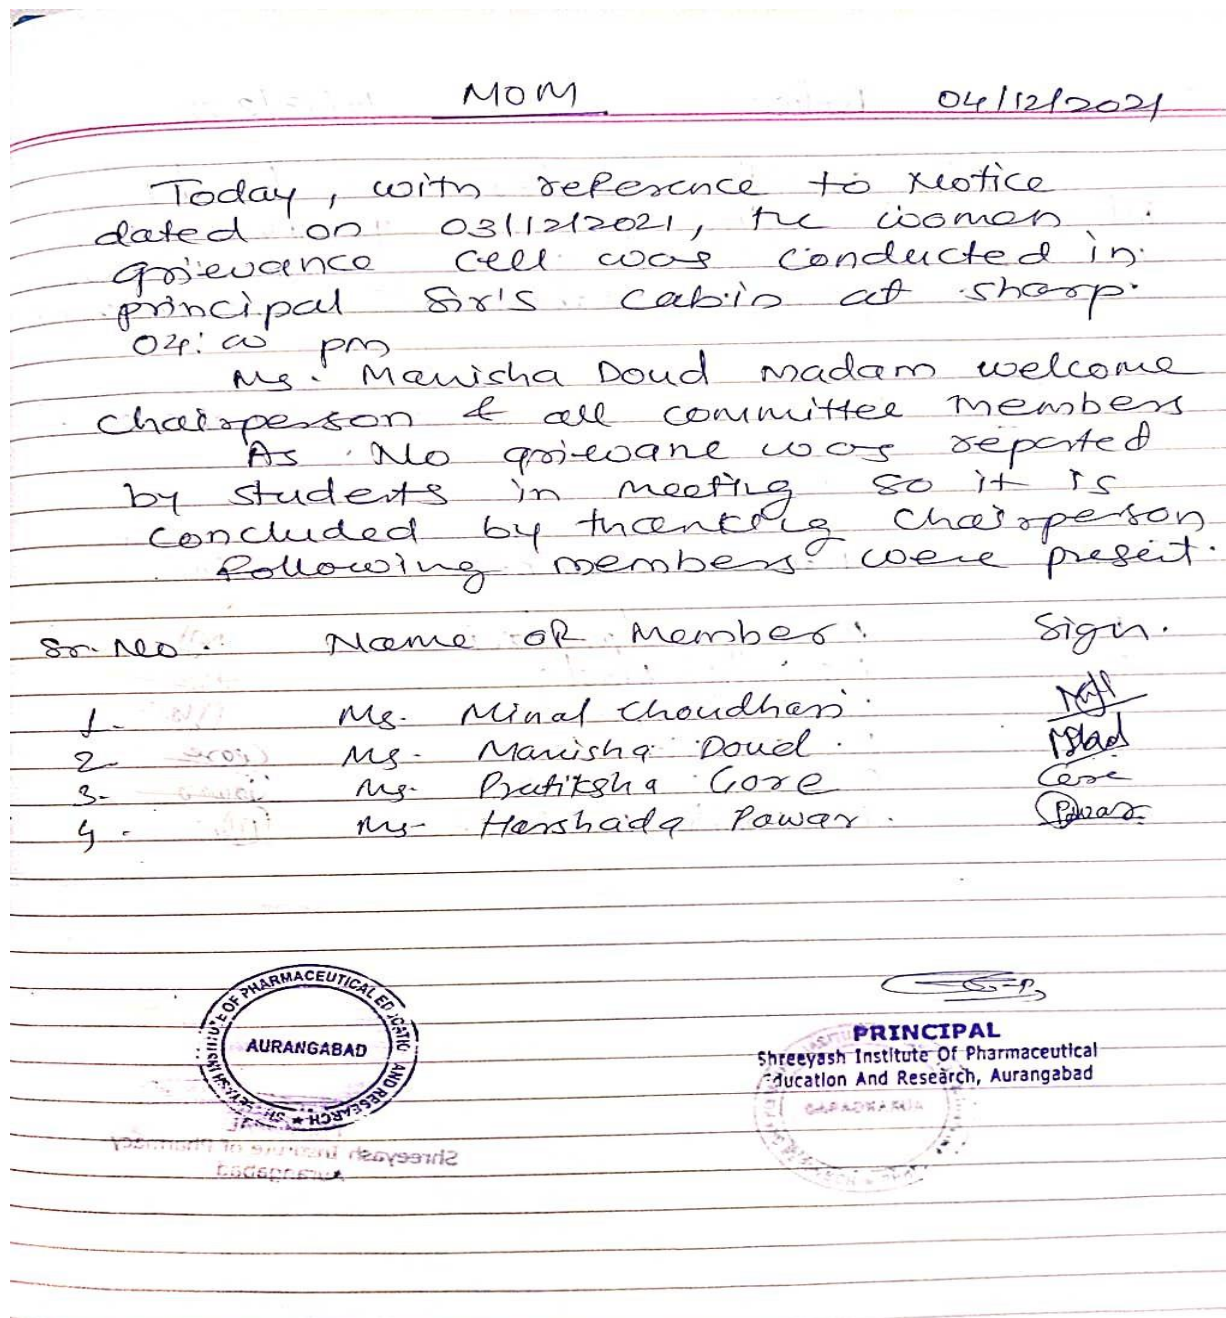 MOM
04/12/2021
Today, with reference to Notice
dated on 03/12/2021, the women
grievance cell was conducted in
principal Sir's cabin at sharp
04:00 pm
Ms. Manisha Doud madam welcome
chairperson & all committee members
As No grievane was reported
by students in meeting so it is
concluded by thanking chairperson
Following members were present.
Sr. No. Name of Member: Sign.
1- Ms. Minal Choudhari
2- Ms. Manisha Doud
3- Ms. Pratiksha Gore Gore
4. Ms. Harshada Pawar. Pawar
INSTITUTE OF PHARMACEUTICAL EDUCATION AND RESEARCH
AURANGABAD
PRINCIPAL
Shreeyash Institute Of Pharmaceutical
Education And Research, Aurangabad
Shreeyash Institute of Pharmacy
Aurangabad